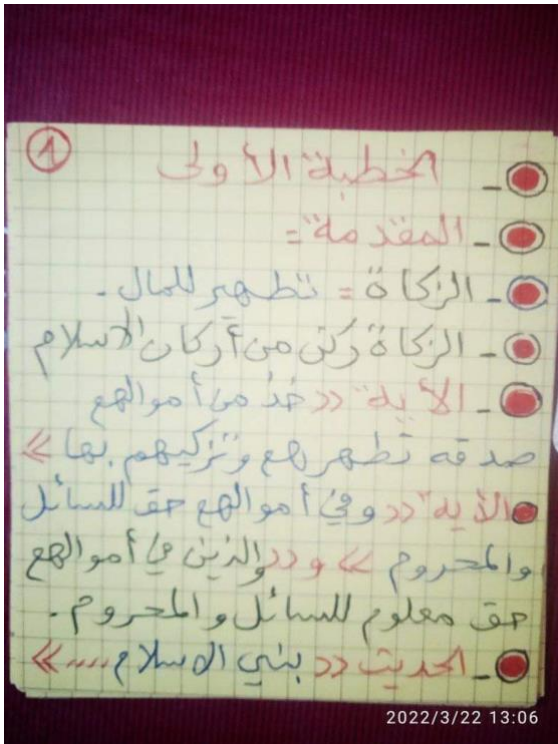 1
- الخطبة الأولى
- المقدمة =
- الزكاة = تطهير للمال .
- الزكاة ركن من أركان الاسلام
- الأية << خذ من أموالهم
صدقه تطهرهم وتزكيهم بها >>
الأية << وفي أموالهم حق للسائل
والمحروم >> و << والذين في أموالهم
حق معلوم للسائل و المحروم .
- الحديث << بني الاسلام .... >>
2022/3/22 13:06